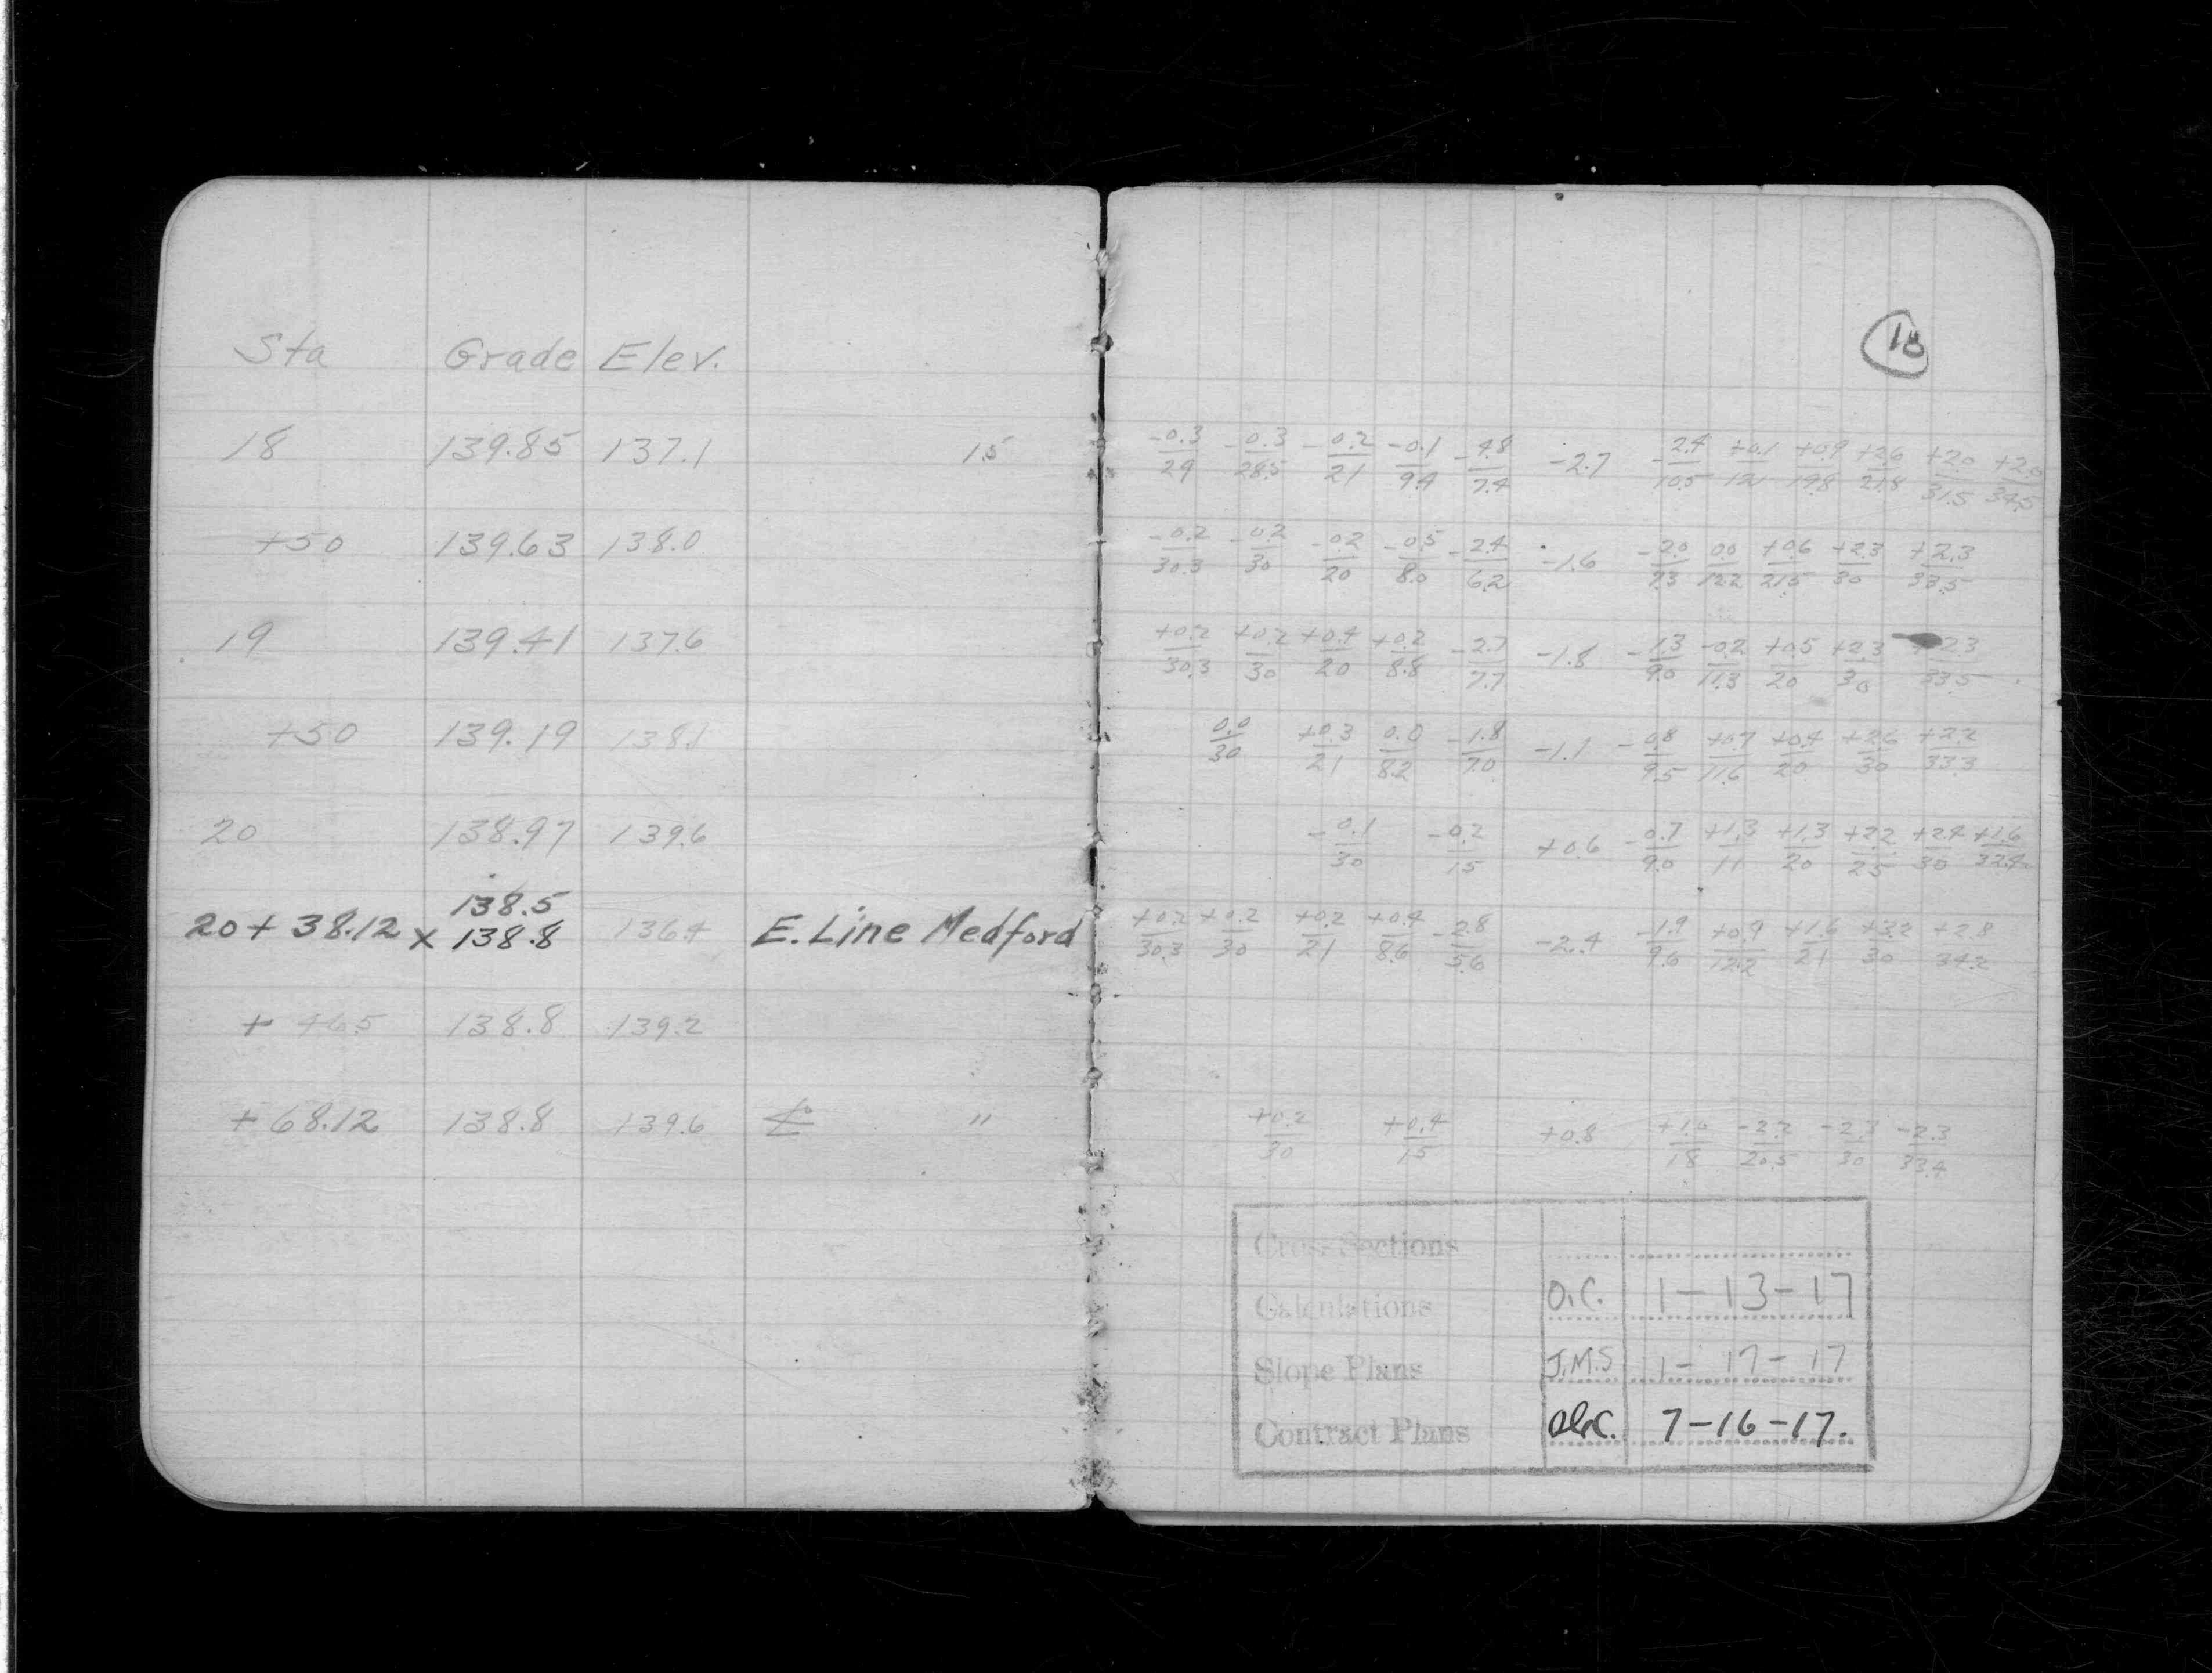 Sta Grade Elev.
18 139.85 137.1 15
+50 139.63 138.0
19 139.41 137.6
+50 139.19 138.1
20 138.97 139.6
138.5
20 + 38.12 x 138.8 136.4 E. Line Medford
+ 46.5 138.8 139.2
+ 68.12 138.8 139.6 "
18
-0.3 -0.3 -0.2 -0.1 -4.8 -2.7 -2.4 +0.1 +0.9 +2.6 +2.0
29 28.5 21 9.4 7.4 10.5 12 19.8 21.8 31.5 34.5
-0.2 -0.2 -0.2 -0.5 -2.4 -1.6 -2.0 0.0 +0.6 +2.3 +2.3
30.3 30 20 8.0 6.2 7.3 12.2 21.5 30 33.5
+0.2 +0.2 +0.4 +0.2 -2.7 -1.8 -1.3 -0.2 +0.5 +2.3 +2.3
30.3 30 20 8.8 7.7 9.0 11.3 20 30 33.5
0.0 +0.3 0.0 -1.8 -1.1 -0.8 +0.7 +0.4 +2.6 +2.2
30 21 8.2 7.0 9.5 11.6 20 30 33.3
-0.1 -0.2 +0.6 -0.7 +1.3 +1.3 +2.2 +2.4 +1.6
30 15 9.0 11 20 25 30 32.4
+0.2 +0.2 +0.2 +0.4 -2.8 -2.4 -1.9 +0.9 +1.6 +3.2 +2.8
30.3 30 21 8.6 5.6 9.6 12.2 21 30 34.2
+0.2 +0.4 +0.8 -2.2 -2.3 -2.3
30 15 18 20.5 30 33.4
Cross Sections
Calculations O.C. 1-13-17
Slope Plans J.M.S 1-17-17
Contract Plans 7-16-17.